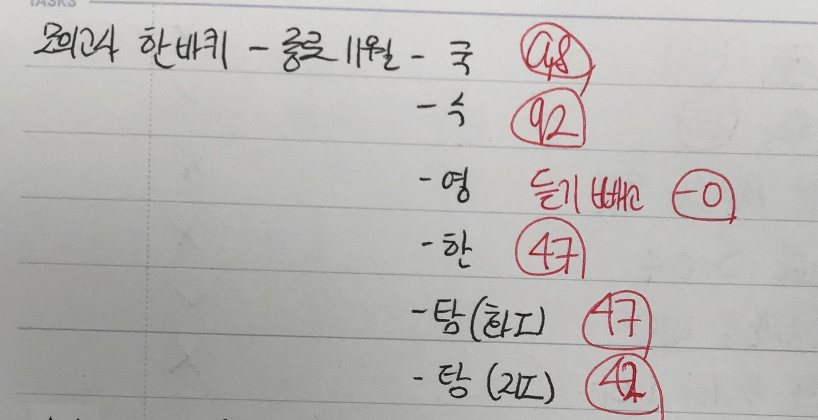 TASKS
모의고사 한바퀴 - 종로 11월 - 국 98
- 수 92
- 영 듣기 빼고 -0
- 한 47
- 탐(화I) 47
- 탐 (지I) 42